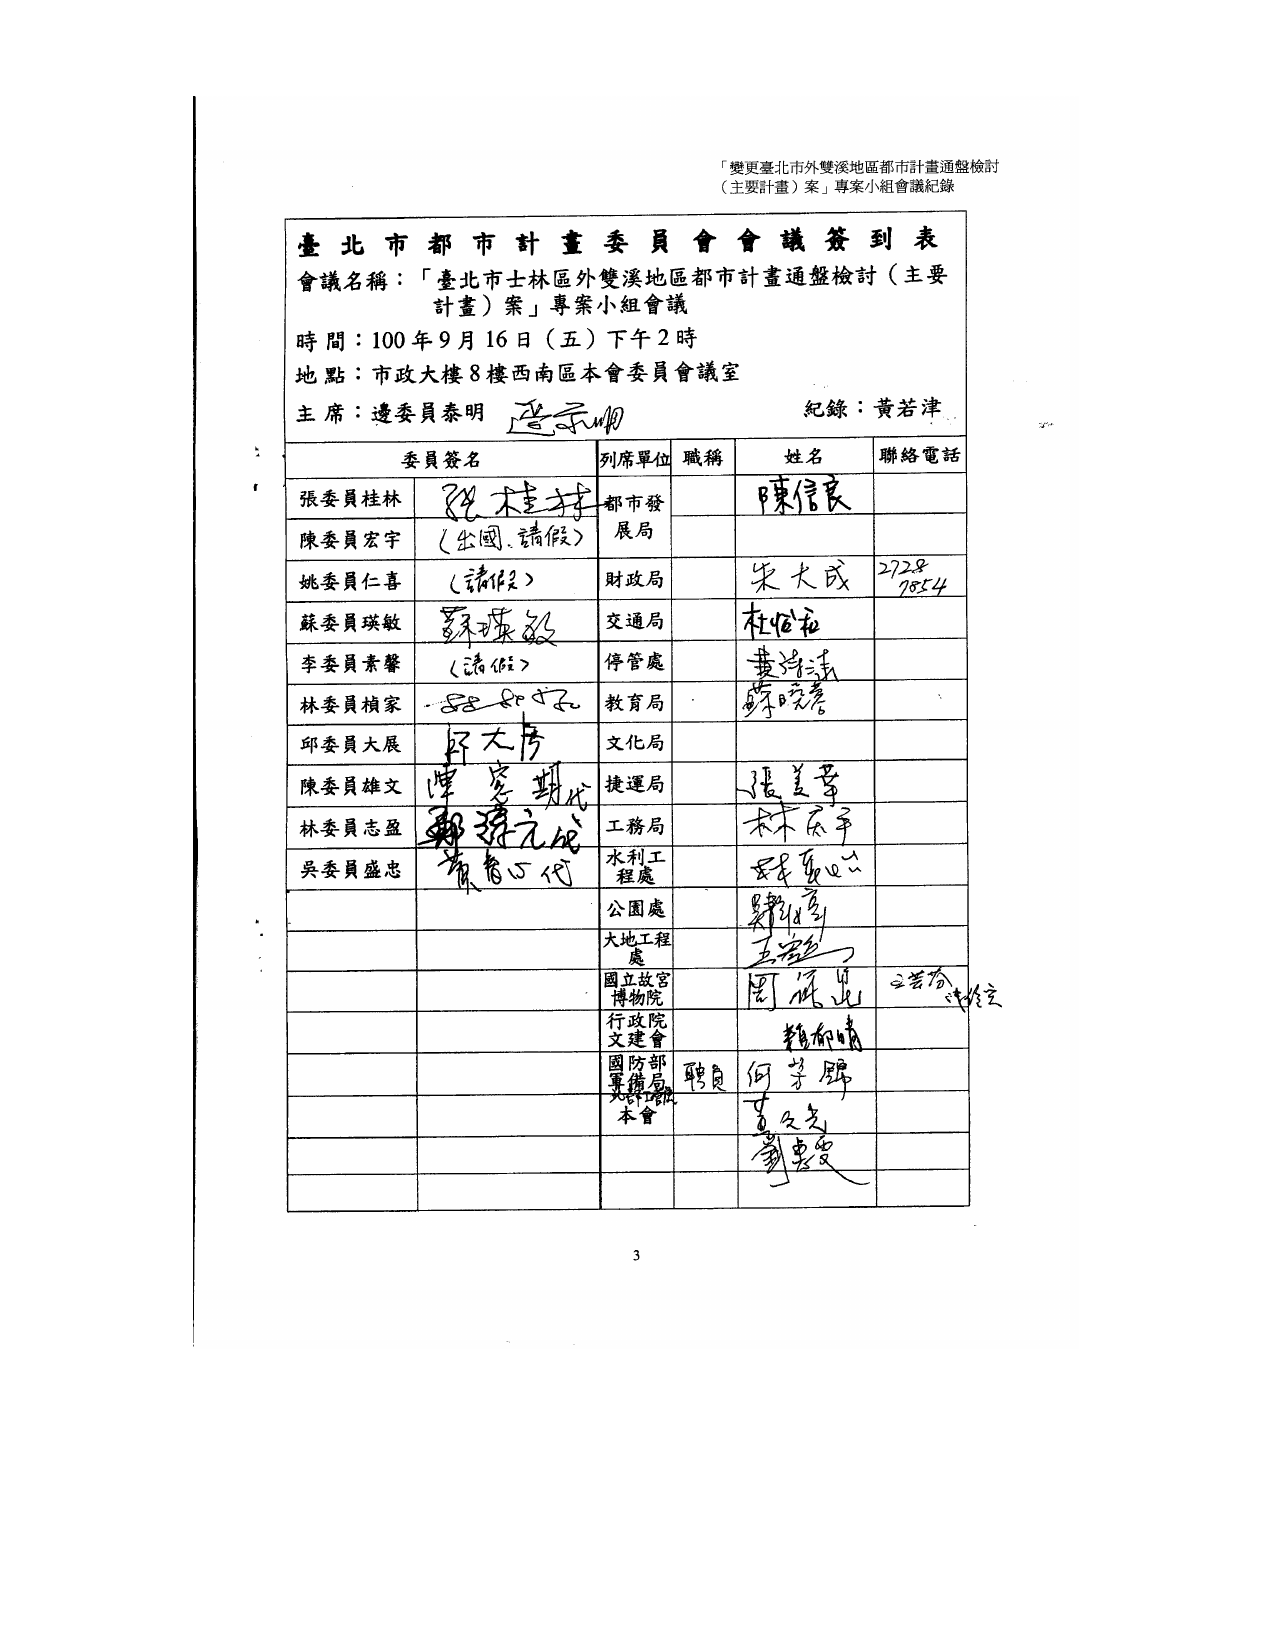 「變更臺北市外雙溪地區都市計畫通盤檢討
（主要計畫）案」專案小組會議紀錄
臺北市都市計畫委員會會議簽到表
會議名稱：「臺北市士林區外雙溪地區都市計畫通盤檢討（主要
計畫）案」專案小組會議
時間：100年9月16日（五）下午2時
地點：市政大樓8樓西南區本會委員會議室
主席：邊委員泰明 邊泰明 紀錄：黃若津
委員簽名 列席單位 職稱 姓名 聯絡電話
張委員桂林 張桂林 都市發展局 陳信良
陳委員宏宇 （出國、請假）
姚委員仁喜 （請假） 財政局 朱大成 2728 7854
蘇委員瑛敏 蘇瑛敏 交通局
李委員素馨 （請假） 停管處
林委員楨家 教育局
邱委員大展 邱大展 文化局
陳委員雄文 代 捷運局 張美華
林委員志盈 工務局
吳委員盛忠 代 水利工程處
公園處
大地工程處
國立故宮博物院
行政院文建會
國防部軍備局 聘員
本會
3